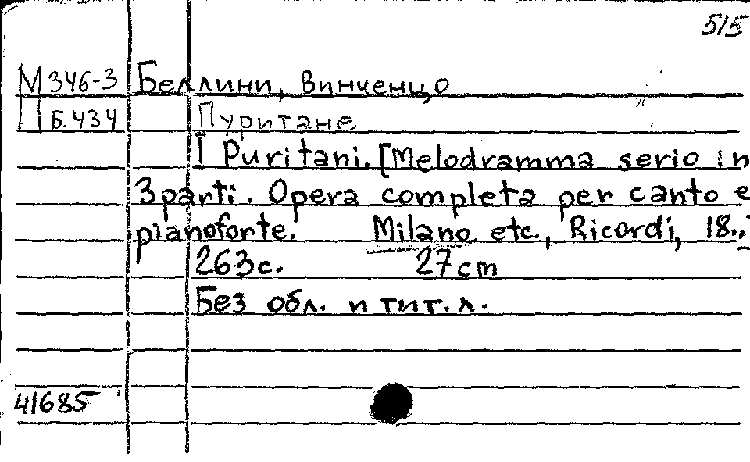 515
М 346-3 Беллини, Винченцо
П Б.434 Пуритане.
I Puritani. [Melodramma serio in
3 parti. Opera completa per canto e
pianoforte. Milano etc., Ricordi, 18..
263 с. 27 cm
Без обл. и тит. л.
41685